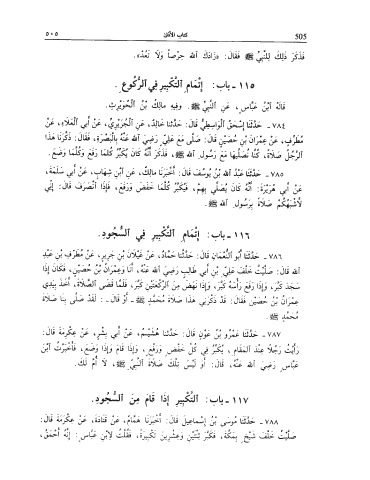 ٥٠٥ كتاب الأذان 505
فَذَكَرَ ذَلِكَ لِلنَّبِيِّ ﷺ فَقَالَ: «زَادَكَ اللَّهُ حِرْصاً وَلَا تَعُدْ».
١١٥ - باب: إِتْمَامِ التَّكْبِيرِ فِي الرُّكُوعِ.
قَالَهُ ابْنُ عَبَّاسٍ، عَنِ النَّبِيِّ ﷺ. وَفِيهِ مَالِكُ بْنُ الْحُوَيْرِثِ.
٧٨٤ - حَدَّثَنَا إِسْحَقُ الْوَاسِطِيُّ قَالَ: حَدَّثَنَا خَالِدٌ، عَنِ الْجُرَيْرِيِّ، عَنْ أَبِي الْعَلَاءِ، عَنْ
مُطَرِّفٍ، عَنْ عِمْرَانَ بْنِ حُصَيْنٍ قَالَ: صَلَّى مَعَ عَلِيٍّ رَضِيَ اللَّهُ عَنْهُ بِالْبَصْرَةِ، فَقَالَ: ذَكَّرَنَا هَذَا
الرَّجُلُ صَلَاةً، كُنَّا نُصَلِّيهَا مَعَ رَسُولِ اللَّهِ ﷺ، فَذَكَرَ أَنَّهُ كَانَ يُكَبِّرُ كُلَّمَا رَفَعَ وَكُلَّمَا وَضَعَ.
٧٨٥ - حَدَّثَنَا عَبْدُ اللَّهِ بْنُ يُوسُفَ قَالَ: أَخْبَرَنَا مَالِكٌ، عَنِ ابْنِ شِهَابٍ، عَنْ أَبِي سَلَمَةَ،
عَنْ أَبِي هُرَيْرَةَ: أَنَّهُ كَانَ يُصَلِّي بِهِمْ، فَيُكَبِّرُ كُلَّمَا خَفَضَ وَرَفَعَ، فَإِذَا انْصَرَفَ قَالَ: إِنِّي
لَأَشْبَهُكُمْ صَلَاةً بِرَسُولِ اللَّهِ ﷺ.
١١٦ - باب: إِتْمَامِ التَّكْبِيرِ فِي السُّجُودِ.
٧٨٦ - حَدَّثَنَا أَبُو النُّعْمَانِ قَالَ: حَدَّثَنَا حَمَّادٌ، عَنْ غَيْلَانَ بْنِ جَرِيرٍ، عَنْ مُطَرِّفِ بْنِ عَبْدِ
اللَّهِ قَالَ: صَلَّيْتُ خَلْفَ عَلِيِّ بْنِ أَبِي طَالِبٍ رَضِيَ اللَّهُ عَنْهُ، أَنَا وَعِمْرَانُ بْنُ حُصَيْنٍ، فَكَانَ إِذَا
سَجَدَ كَبَّرَ، وَإِذَا رَفَعَ رَأْسَهُ كَبَّرَ، وَإِذَا نَهَضَ مِنَ الرَّكْعَتَيْنِ كَبَّرَ، فَلَمَّا قَضَى الصَّلَاةَ، أَخَذَ بِيَدِي
عِمْرَانُ بْنُ حُصَيْنٍ فَقَالَ: قَدْ ذَكَّرَنِي هَذَا صَلَاةَ مُحَمَّدٍ ﷺ - أَوْ قَالَ -: لَقَدْ صَلَّى بِنَا صَلَاةَ
مُحَمَّدٍ ﷺ.
٧٨٧ - حَدَّثَنَا عَمْرُو بْنُ عَوْنٍ قَالَ: حَدَّثَنَا هُشَيْمٌ، عَنْ أَبِي بِشْرٍ، عَنْ عِكْرِمَةَ قَالَ:
رَأَيْتُ رَجُلًا عِنْدَ الْمَقَامِ، يُكَبِّرُ فِي كُلِّ خَفْضٍ وَرَفْعٍ، وَإِذَا قَامَ وَإِذَا وَضَعَ، فَأَخْبَرْتُ ابْنَ
عَبَّاسٍ رَضِيَ اللَّهُ عَنْهُ، قَالَ: أَوَ لَيْسَ تِلْكَ صَلَاةَ النَّبِيِّ ﷺ، لَا أُمَّ لَكَ.
١١٧ - باب: التَّكْبِيرِ إِذَا قَامَ مِنَ السُّجُودِ.
٧٨٨ - حَدَّثَنَا مُوسَى بْنُ إِسْمَاعِيلَ قَالَ: أَخْبَرَنَا هَمَّامٌ، عَنْ قَتَادَةَ، عَنْ عِكْرِمَةَ قَالَ:
صَلَّيْتُ خَلْفَ شَيْخٍ بِمَكَّةَ، فَكَبَّرَ ثِنْتَيْنِ وَعِشْرِينَ تَكْبِيرَةً، فَقُلْتُ لِابْنِ عَبَّاسٍ: إِنَّهُ أَحْمَقُ،